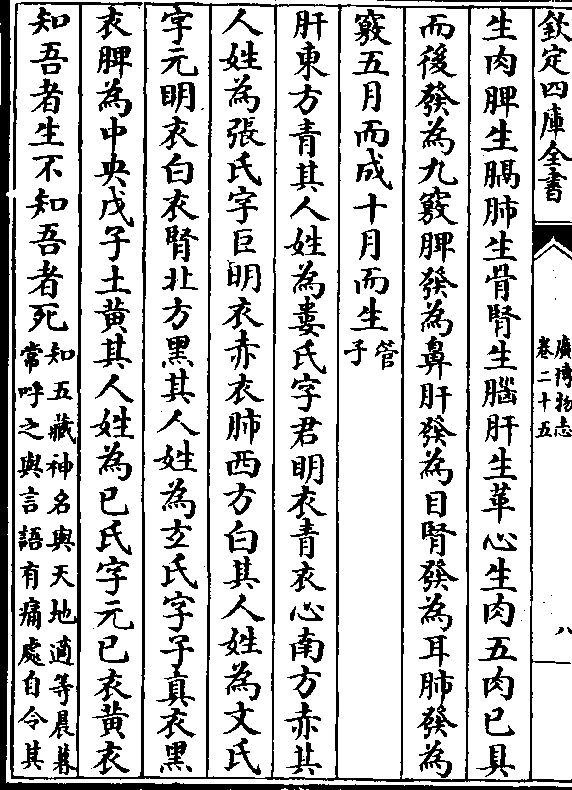 欽定四庫全書
廣博物志
卷二十五
八
生肉脾生膈肺生骨腎生腦肝生革心生肉五肉已具
而後發為九竅脾發為鼻肝發為目腎發為耳肺發為
竅五月而成十月而生管子
肝東方青其人姓為婁氏字君明衣青衣心南方赤其
人姓為張氏字巨明衣赤衣肺西方白其人姓為文氏
字元明衣白衣腎北方黑其人姓為玄氏字子真衣黑
衣脾為中央戊子土黃其人姓為已氏字元已衣黃衣
知吾者生不知吾者死知五藏神名與天地適等晨暮
常呼之與言語有痛處自令其